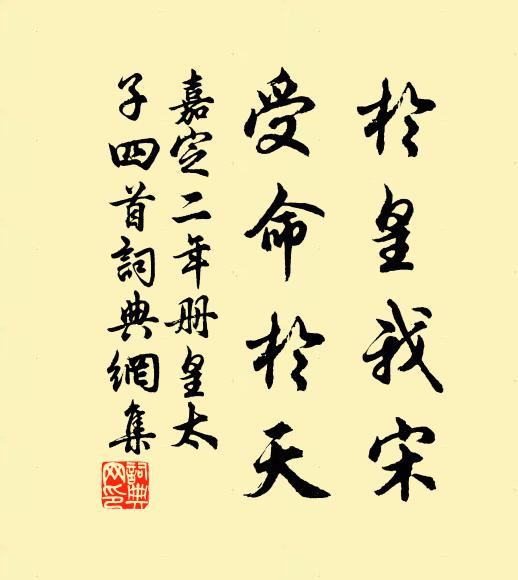 於皇我宋
受命於天
嘉定二年册皇太
子四首詞典網集
詞典網印